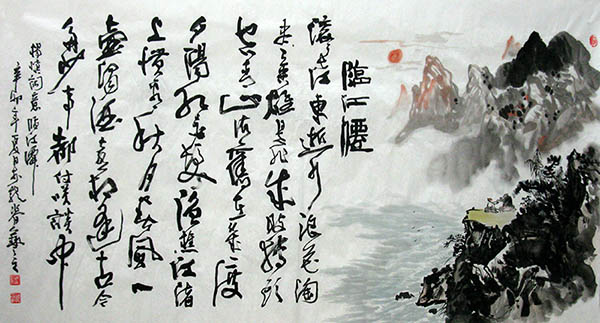 臨江僊
滚々長江東逝水浪花淘
盡英雄是非成敗轉頭
空青山依舊在幾度
夕陽紅白髮漁樵江渚
上慣看秋月春風一
壺濁酒喜相逢古今
多少事都付笑談中
楊慎詞意臨江僊
辛卯年夏月